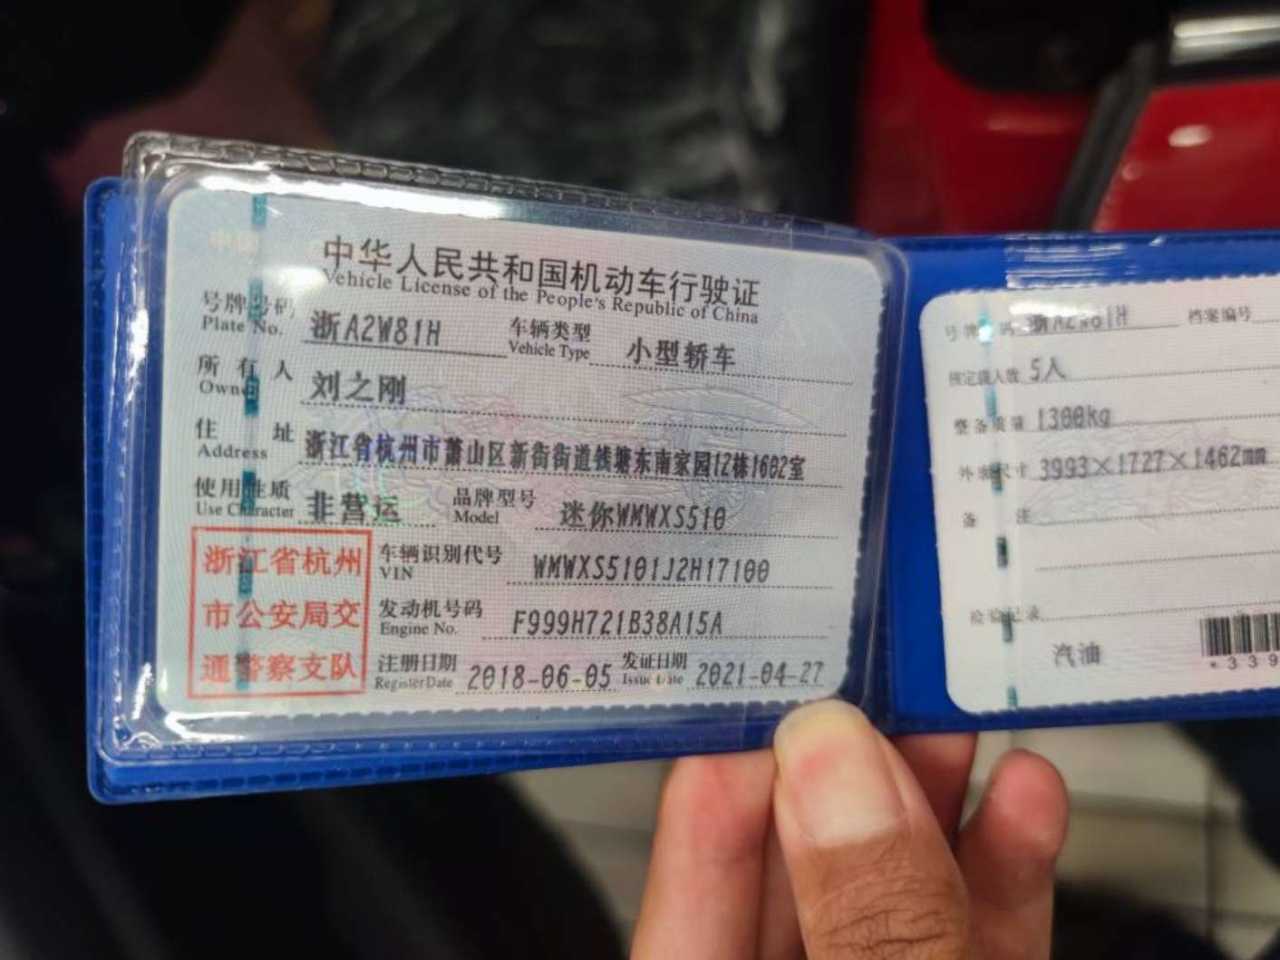 中华人民共和国机动车行驶证
Vehicle License of the People's Republic of China
号牌号码 浙A2W81H 车辆类型 小型轿车
Plate No. Vehicle Type
所有人 刘之刚
Owner
住址 浙江省杭州市萧山区新街街道钱塘东南家园12栋1602室
Address
使用性质 非营运 品牌型号 迷你WMWXS510
Use Character Model
浙江省杭州
市公安局交
通警察支队
车辆识别代号 WMWXS5101J2H17100
VIN
发动机号码 F999H721B38A15A
Engine No.
注册日期 2018-06-05 发证日期 2021-04-27
Register Date Issue Date
号牌号码 浙A2W81H 档案编号
核定载人数 5人
整备质量 1300kg
外廓尺寸 3993×1727×1462mm
备注
检验记录
汽油
*339